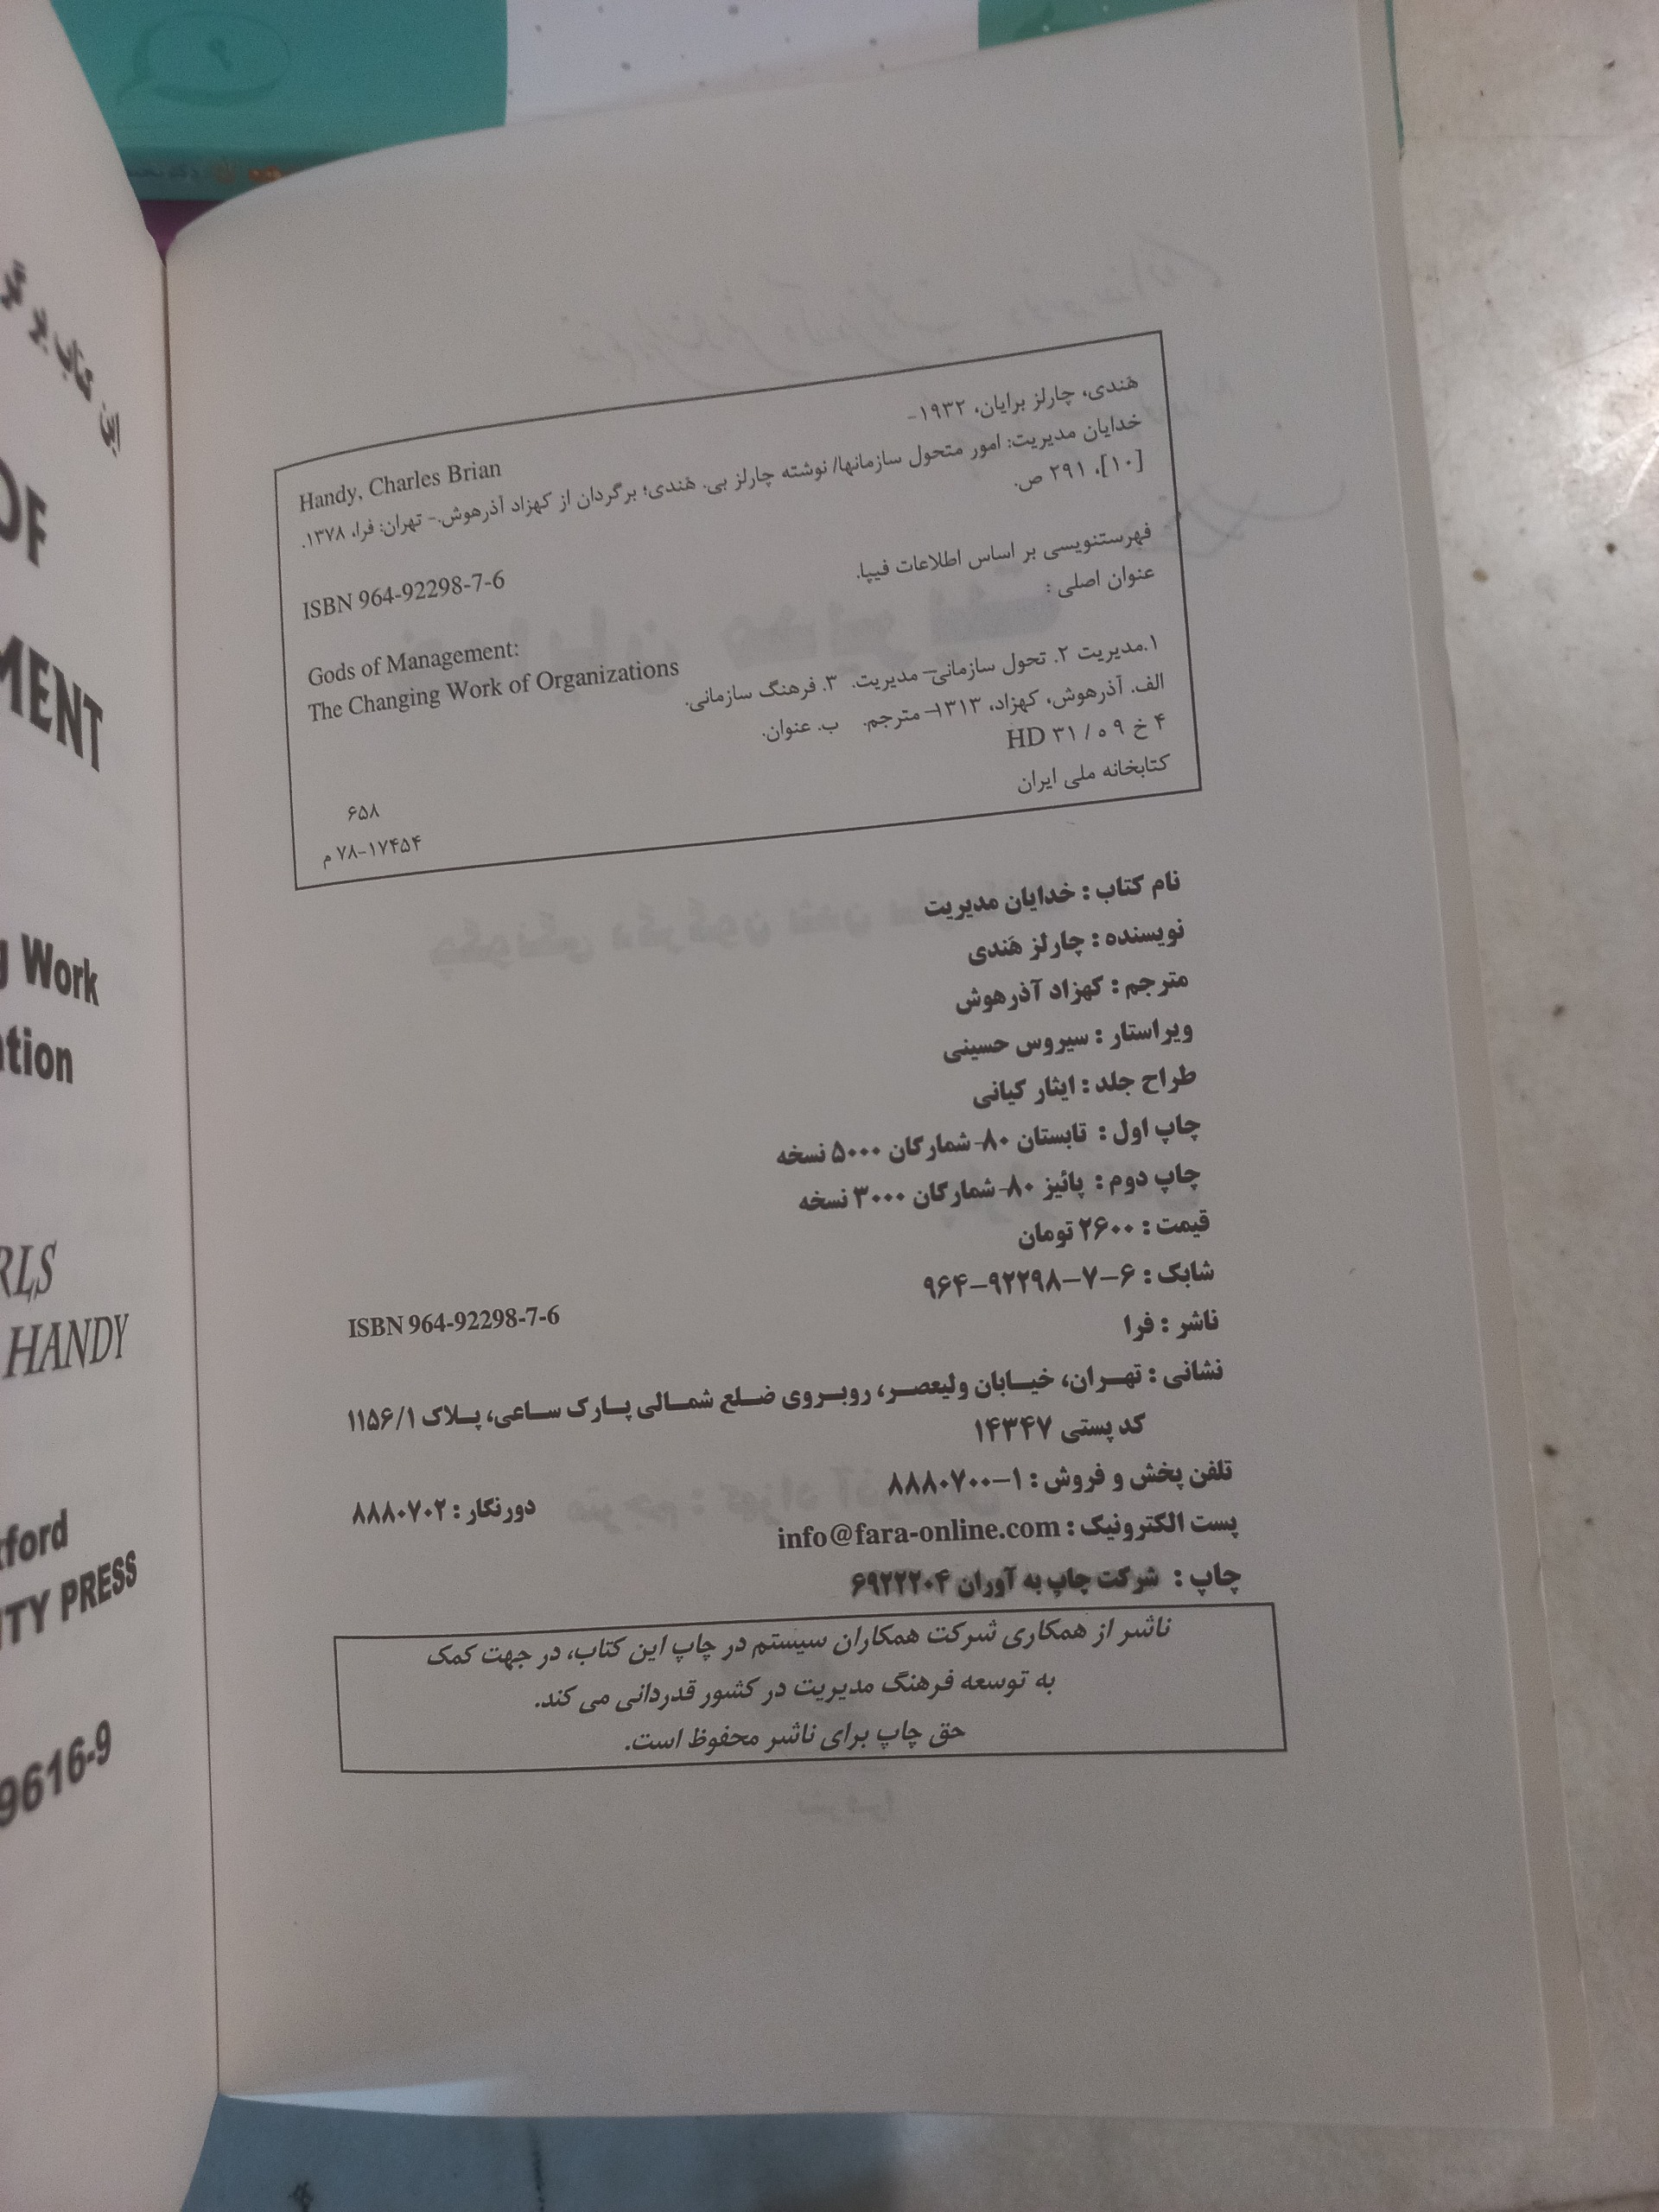 این کتاب بر
OF
MENT
Work
HANDY
PRESS
9616-9
هَندی، چارلز برایان، ۱۹۳۲-
Handy, Charles Brian
خدایان مدیریت: امور متحول سازمانها/ نوشته چارلز بی. هَندی؛ برگردان از کهزاد آذرهوش.- تهران: فرا، ۱۳۷۸.
[۱۰]، ۲۹۱ ص.
ISBN 964-92298-7-6
فهرستنویسی بر اساس اطلاعات فیپا.
عنوان اصلی :
Gods of Management:
The Changing Work of Organizations
۱.مدیریت ۲. تحول سازمانی- مدیریت. ۳. فرهنگ سازمانی.
الف. آذرهوش، کهزاد، ۱۳۱۳- مترجم. ب. عنوان.
۴ خ ۹ ه / ۳۱ HD
۶۵۸
کتابخانه ملی ایران
۷۸-۱۷۴۵۴ م
نام کتاب : خدایان مدیریت
نویسنده : چارلز هَندی
مترجم : کهزاد آذرهوش
ویراستار : سیروس حسینی
طراح جلد : ایثار کیانی
چاپ اول : تابستان ۸۰- شمارگان ۵۰۰۰ نسخه
چاپ دوم : پائیز ۸۰- شمارگان ۳۰۰۰ نسخه
قیمت : ۲۶۰۰ تومان
شابک : ۶-۷-۹۲۲۹۸-۹۶۴
ISBN 964-92298-7-6
ناشر : فرا
نشانی : تهران، خیابان ولیعصر، روبروی ضلع شمالی پارک ساعی، پلاک ۱۱۵۶/۱
کد پستی ۱۴۳۴۷
تلفن پخش و فروش : ۱-۸۸۸۰۷۰۰
دورنگار : ۸۸۸۰۷۰۲
پست الکترونیک : info@fara-online.com
چاپ : شرکت چاپ به آوران ۶۹۲۲۲۰۴
ناشر از همکاری شرکت همکاران سیستم در چاپ این کتاب، در جهت کمک
به توسعه فرهنگ مدیریت در کشور قدردانی می کند.
حق چاپ برای ناشر محفوظ است.